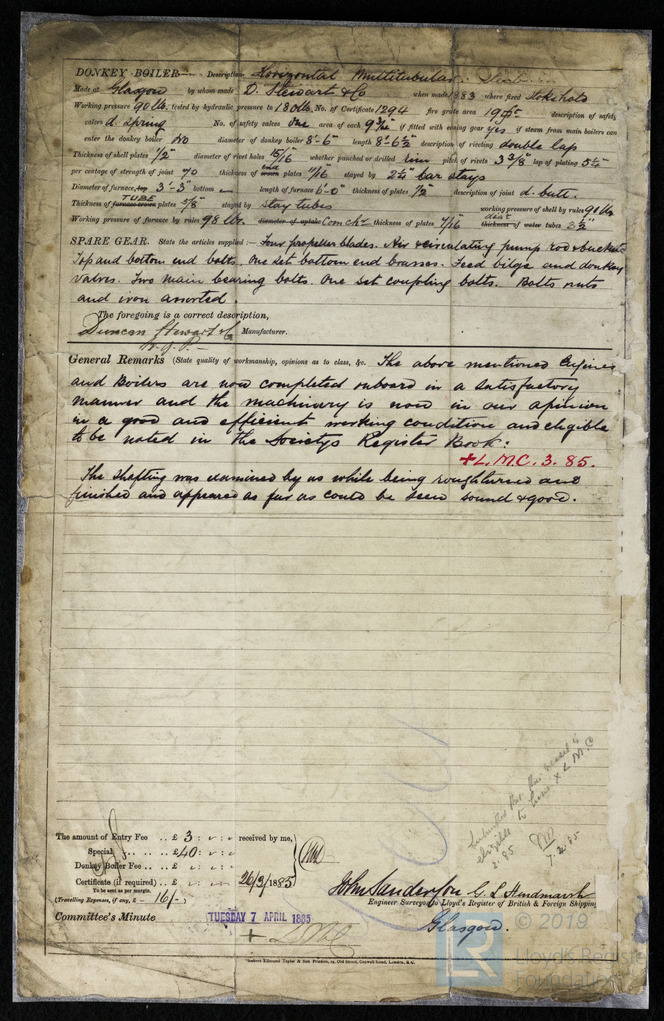 DONKEY BOILER— Description Horizontal Multitubular:
Made at Glasgow by whom made D. Stewart & Co when made 1883 where fixed Stokehold
Working pressure 90 lb. tested by hydraulic pressure to 180 lb. No. of Certificate 1294 fire grate area description of safety
valves d. Spring No. of safety valves One area of each if fitted with easing gear yes if steam from main boilers can
enter the donkey boiler No diameter of donkey boiler 8'-6" length 8'-6½" description of riveting double lap
Thickness of shell plates ½" diameter of rivet holes 15/16 whether punched or drilled pitch of rivets 3 3/8 lap of plating 5½"
per centage of strength of joint 70 thickness of end plates 11/16 stayed by 2¼" bar stays
Diameter of furnace, top 3'-3" bottom length of furnace 6'-0" thickness of plates ½ description of joint d. butt.
Thickness of TUBE plates 5/8 stayed by stay tubes working pressure of shell by rules 90 lbs
Working pressure of furnace by rules 98 lbs. diameter of uptake Com ch. thickness of plates 7/16 tubes 2½"
SPARE GEAR. State the articles supplied:— Four propeller blades. Air & circulating pump rod & buckets
Top and bottom end bolts. One set bottom end brasses. Feed bilge and donkey
valves. Two main bearing bolts. One set coupling bolts. Bolts nuts
and iron assorted.
The foregoing is a correct description,
Duncan Stewart & Co Manufacturer.
General Remarks (State quality of workmanship, opinions as to class, &c. The above mentioned Engines
and Boilers are now completed onboard in a satisfactory
manner and the machinery is now in our opinion
in a good and efficient working condition and eligible
to be noted in the Societys Register Book:
+L.M.C. 3. 85.
The shafting was examined by us while being rough turned and
finished and appeared as far as could be seen sound & good.
Submitted that this vessel is
eligible to have + L M.C
3. 85
7. 4. 85
The amount of Entry Fee .. £ 3 : " : " received by me,
Special .. .. £ 40 : " : "
Donkey Boiler Fee .. £ " : " : "
Certificate (if required) .. £ " : " : " 26/3/1885
To be sent as per margin.
(Travelling Expenses, if any, £ 16/-)
John Sanderson G. S. Hindmarsh
Engineer Surveyors to Lloyd's Register of British & Foreign Shipping
Committee's Minute
TUESDAY 7 APRIL 1885
Glasgow.
+ L.M.C
Robert Edmund Taylor & Son Printers, 19, Old Street, Goswell Road, London, E.C.
© 2019
LR
Lloyd's Register
Foundation